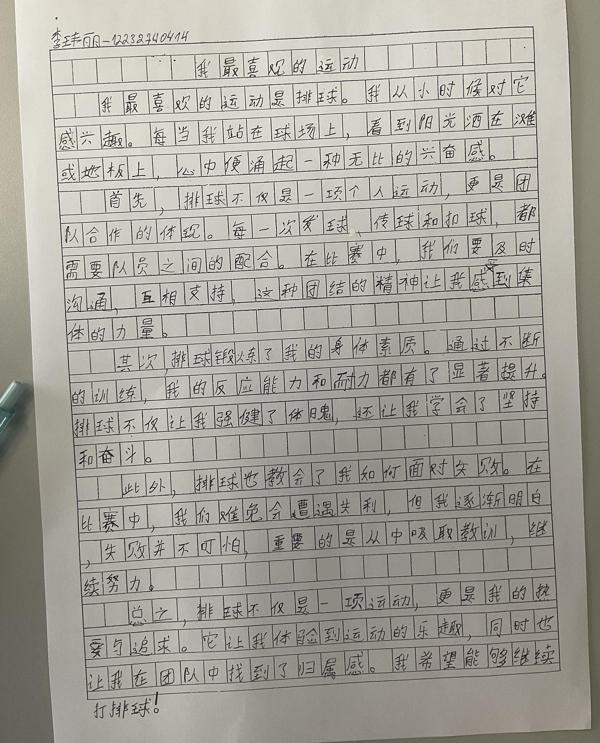 李玮丽-12232740414
我最喜欢的运动
我最喜欢的运动是排球。我从小时候对它
感兴趣。每当我站在球场上，看到阳光洒在滩
或地板上，心中便涌起一种无比的兴奋感。
首先，排球不仅是一项个人运动，更是团
队合作的体现。每一次发球、传球和扣球，都
需要队员之间的配合。在比赛中，我们要及时
沟通，互相支持，这种团结的精神让我感受到集
体的力量。
其次，排球锻炼了我的身体素质。通过不断
的训练，我的反应能力和耐力都有了显著提升。
排球不仅让我强健了体魄，还让我学会了坚持
和奋斗。
此外，排球也教会了我如何面对失败。在
比赛中，我们难免会遭遇失利，但我逐渐明白
，失败并不可怕，重要的是从中吸取教训，继
续努力。
总之，排球不仅是一项运动，更是我的热
爱与追求。它让我体验到运动的乐趣，同时也
让我在团队中找到了归属感。我希望能够继续
打排球！